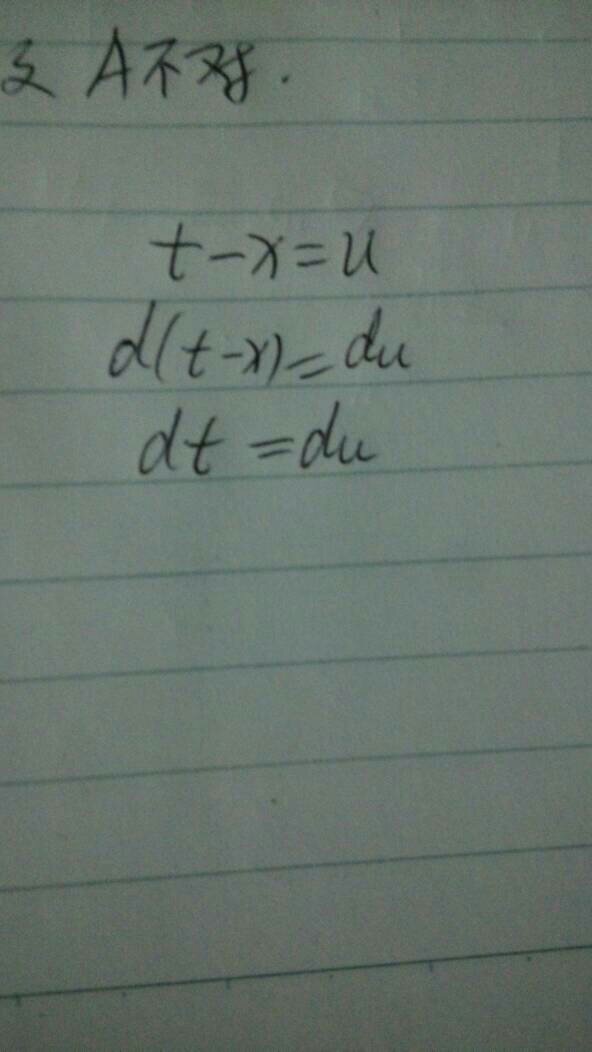 A不对.
t-x=u
d(t-x)=du
dt=du